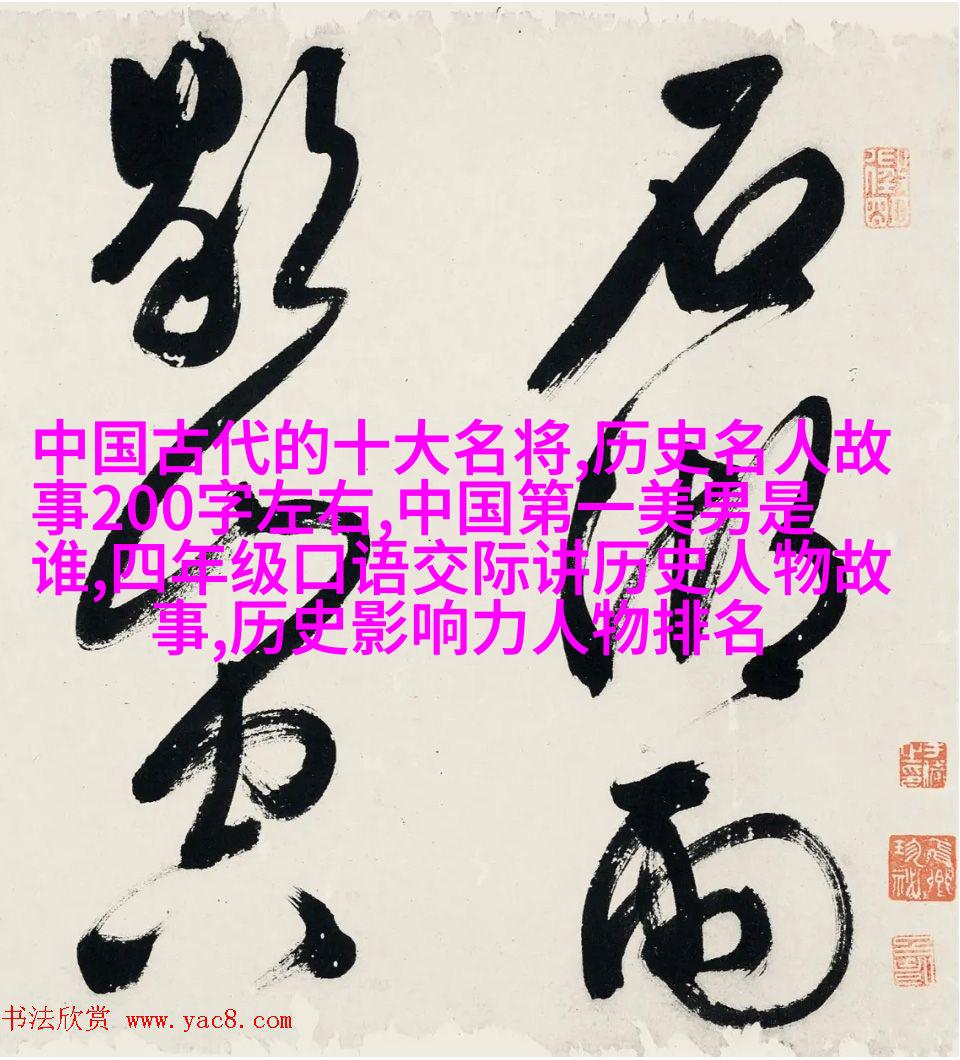 石湖雨
歇山空
中国古代的十大名将,历史名人故
事200字左右,中国第一美男是
谁,四年级口语交际讲历史人物故
事,历史影响力人物排名
书法欣赏 www.yac8.com